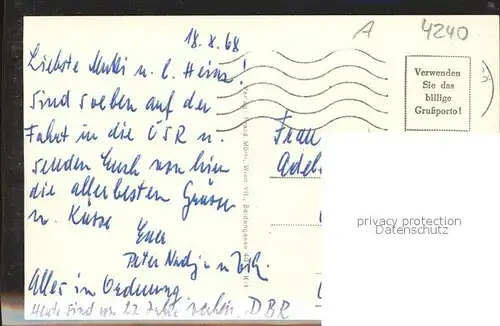 18.X.68
A
4240
Liebste Mutti u. l. Heinz!
Sind soeben auf der
Fahrt in die ČSR u.
senden Euch von hier
die allerbesten Grüsse
u. Küsse
Euer
Peter
Alles in Ordnung
Heute sind wir 22 Jahre DBR
Verwenden
Sie das
billige
Grußporto!
Wien VII.,
Frau
Adel
privacy protection
Datenschutz